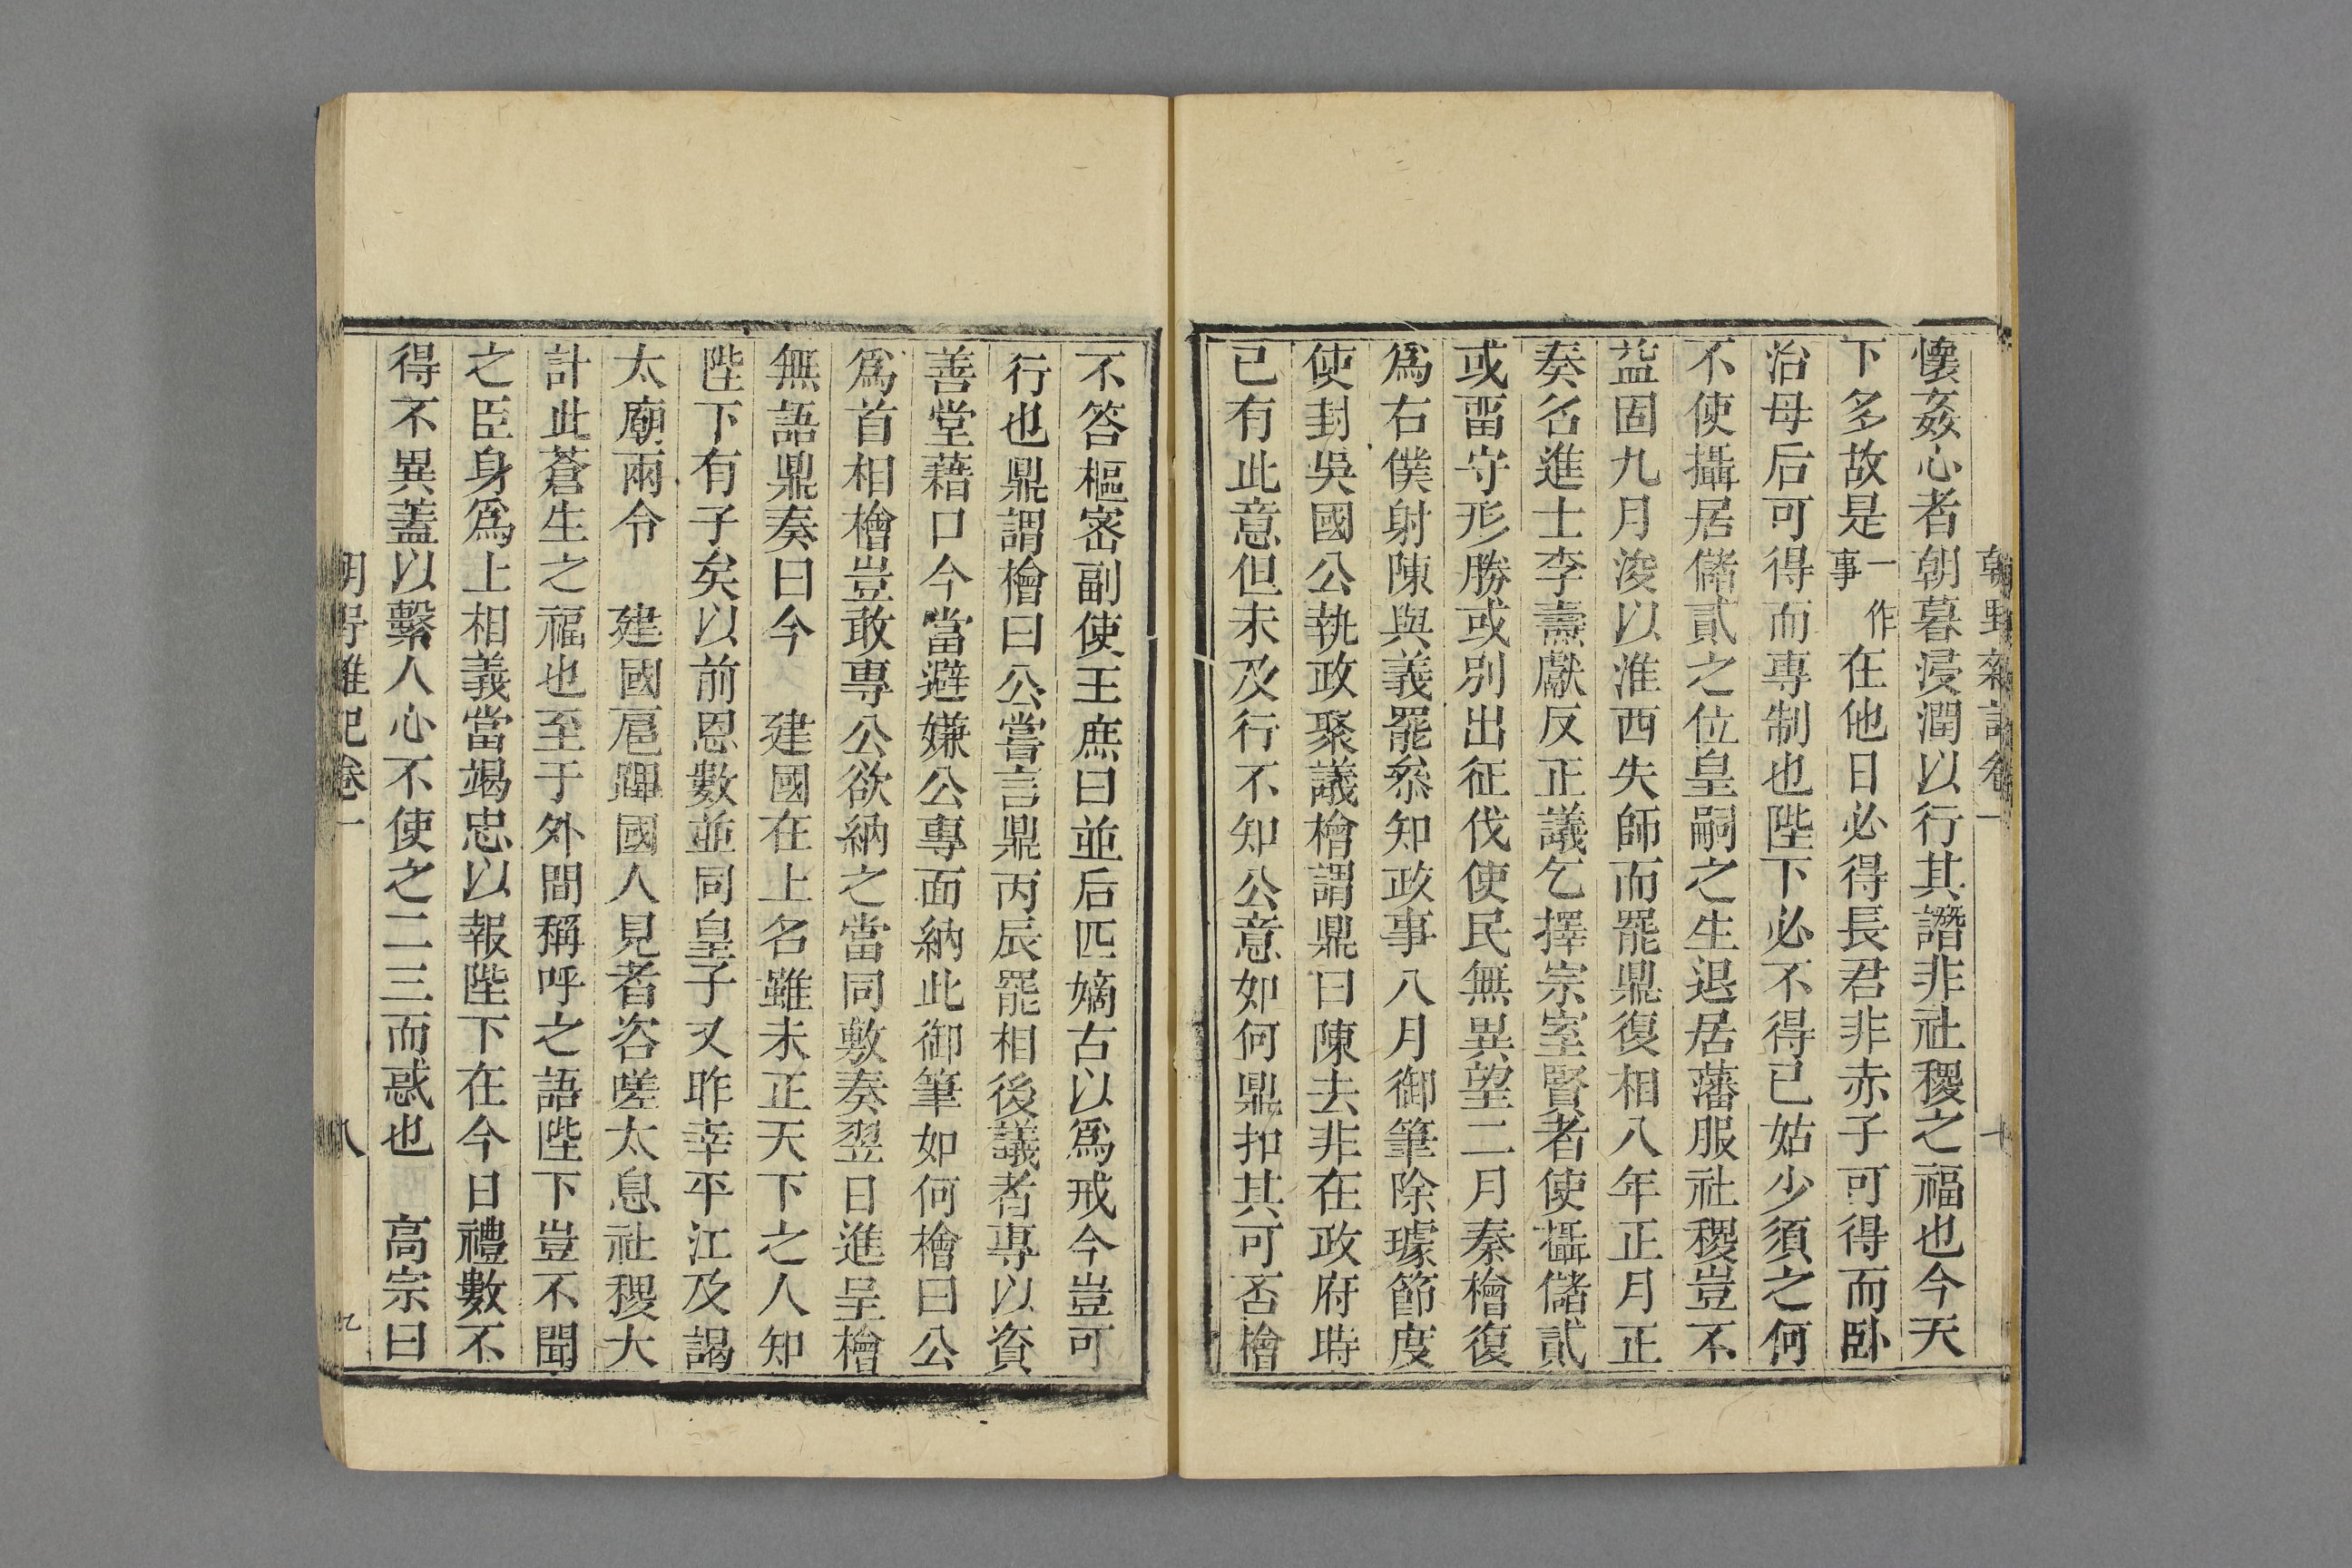 朝野雜記卷一 十
懷姦心者朝暮浸潤以行其譖非社稷之福也今天
下多故是一作事在他日必得長君非赤子可得而臥
治母后可得而專制也陛下必不得已姑少須之何
不使攝居儲貳之位皇嗣之生退居藩服社稷豈不
益固九月浚以淮西失師而罷鼎復相八年正月正
奏名進士李燾獻反正議乞擇宗室賢者使攝儲貳
或畱守形勝或別出征伐使民無異望二月秦檜復
爲右僕射陳與義罷叅知政事八月御筆除璩節度
使封吳國公執政聚議檜謂鼎曰陳去非在政府時
已有此意但未及行不知公意如何鼎扣其可否檜
不答樞密副使王庶曰並后匹嫡古以爲戒今豈可
行也鼎謂檜曰公嘗言鼎丙辰罷相後議者專以資
善堂藉口今當避嫌公專面納此御筆如何檜曰公
爲首相檜豈敢專公欲納之當同敷奏翌日進呈檜
無語鼎奏曰今 建國在上名雖未正天下之人知
陛下有子矣以前恩數並同皇子又昨幸平江及謁
太廟兩令 建國扈蹕國人見者咨嗟太息社稷大
計此蒼生之福也至于外間稱呼之語陛下豈不聞
之臣身爲上相義當竭忠以報陛下在今日禮數不
得不異蓋以繫人心不使之二三而惑也 高宗曰
卷一 八